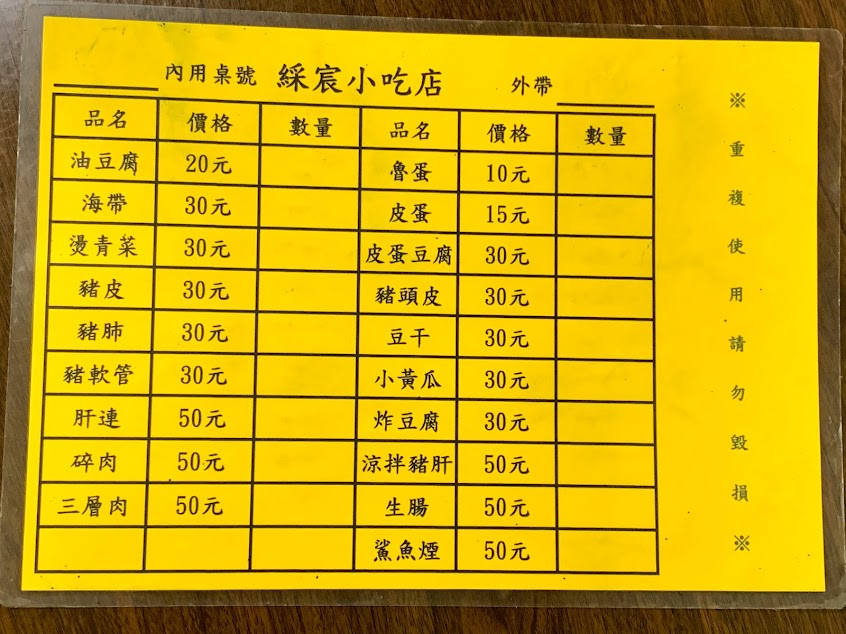 內用桌號 綵宸小吃店 外帶
品名 價格 數量 品名 價格 數量
油豆腐 20元 魯蛋 10元
海帶 30元 皮蛋 15元
燙青菜 30元 皮蛋豆腐 30元
豬皮 30元 豬頭皮 30元
豬肺 30元 豆干 30元
豬軟管 30元 小黃瓜 30元
肝連 50元 炸豆腐 30元
碎肉 50元 涼拌豬肝 50元
三層肉 50元 生腸 50元
鯊魚煙 50元
※重複使用請勿毀損※